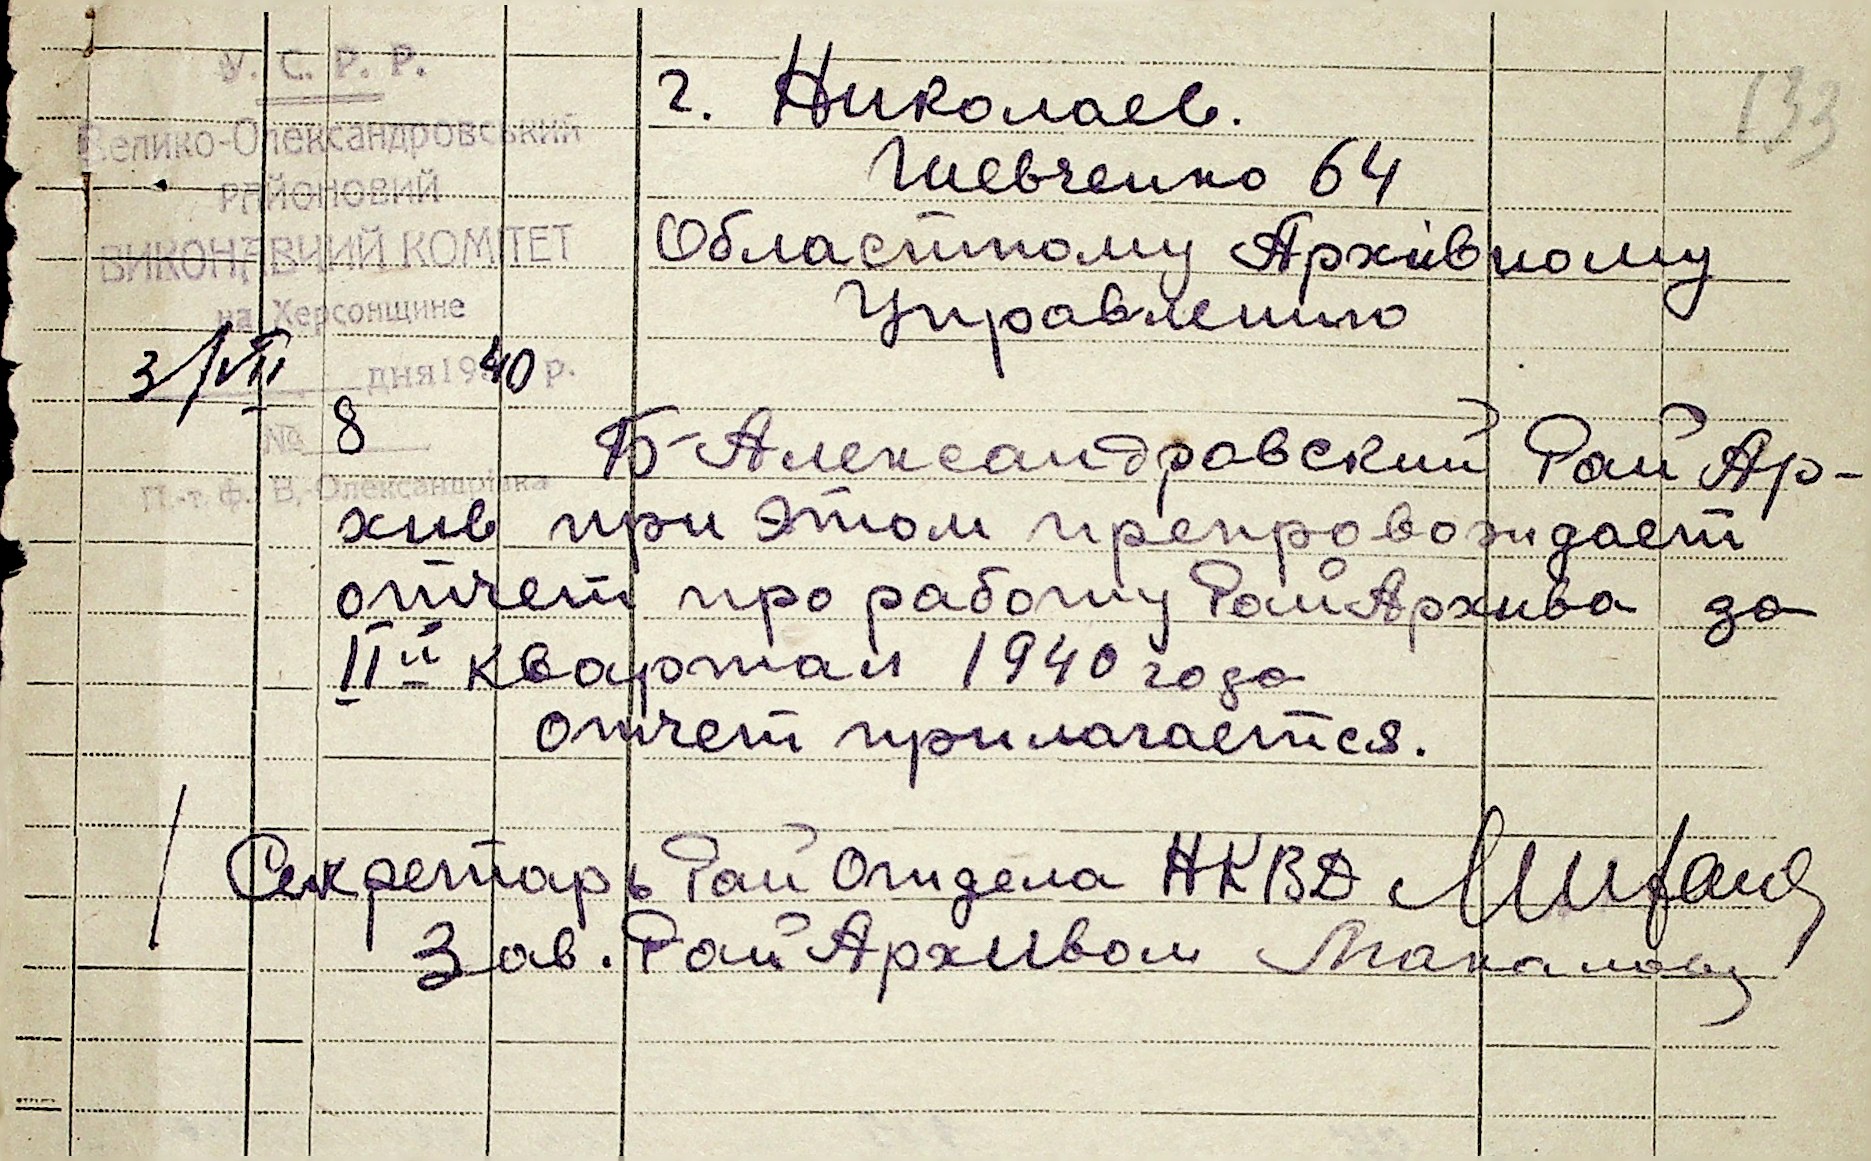 133
У. С. Р. Р.
Велико-Олександровський
РАЙОНОВИЙ
ВИКОНАВЧИЙ КОМІТЕТ
на Херсонщине
3/VII дня 1940 р.
№ 8
П.-т. ф. В. Олександрівка
г. Николаев.
Шевченко 64
Областному Архивному
Управлению
Б-Александровский РайАр-
хив при этом препровождает
отчет про работу РайАрхива за
IIй квартал 1940 года
отчет прилагается.
Секретарь Рай Отдела НКВД
Зав. РайАрхивом